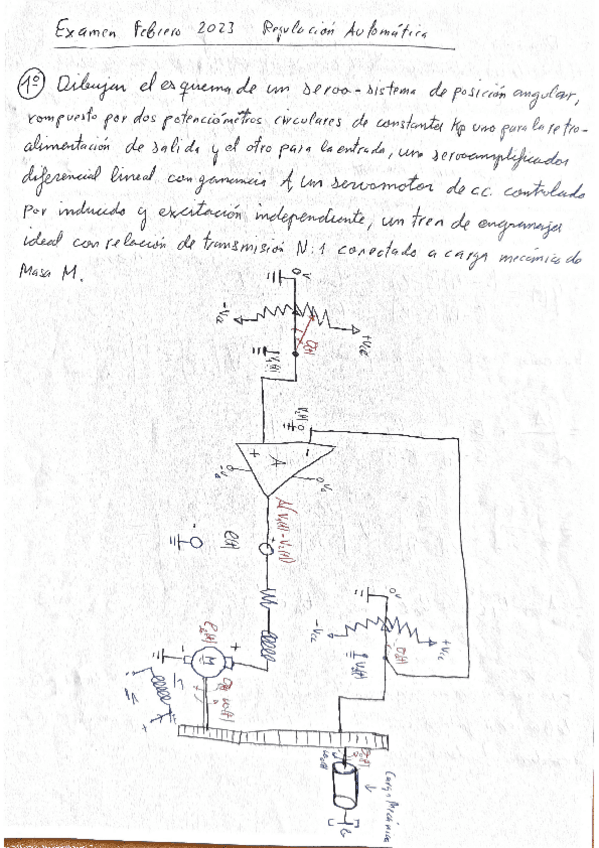 Examen Febrero 2023 Regulación Automática
1º Dibujar el esquema de un servo-sistema de posición angular,
compuesto por dos potenciómetros circulares de constantes Kp uno para la retro-
alimentación de salida y el otro para la entrada, un servoamplificador
diferencial lineal con ganancia A un servomotor de cc. controlado
por inducido y excitación independiente, un tren de engranajes
ideal con relación de transmisión N:1 conectado a carga mecánica de
Masa M.
0V
-Vcc
+Vcc
V₁(t)
V₂(t)
-
+
A
A(V₁(t)-V₂(t))
e(t)
0V
-Vcc
+Vcc
V₂(t)
+
M
-
+
Carga Mecánica